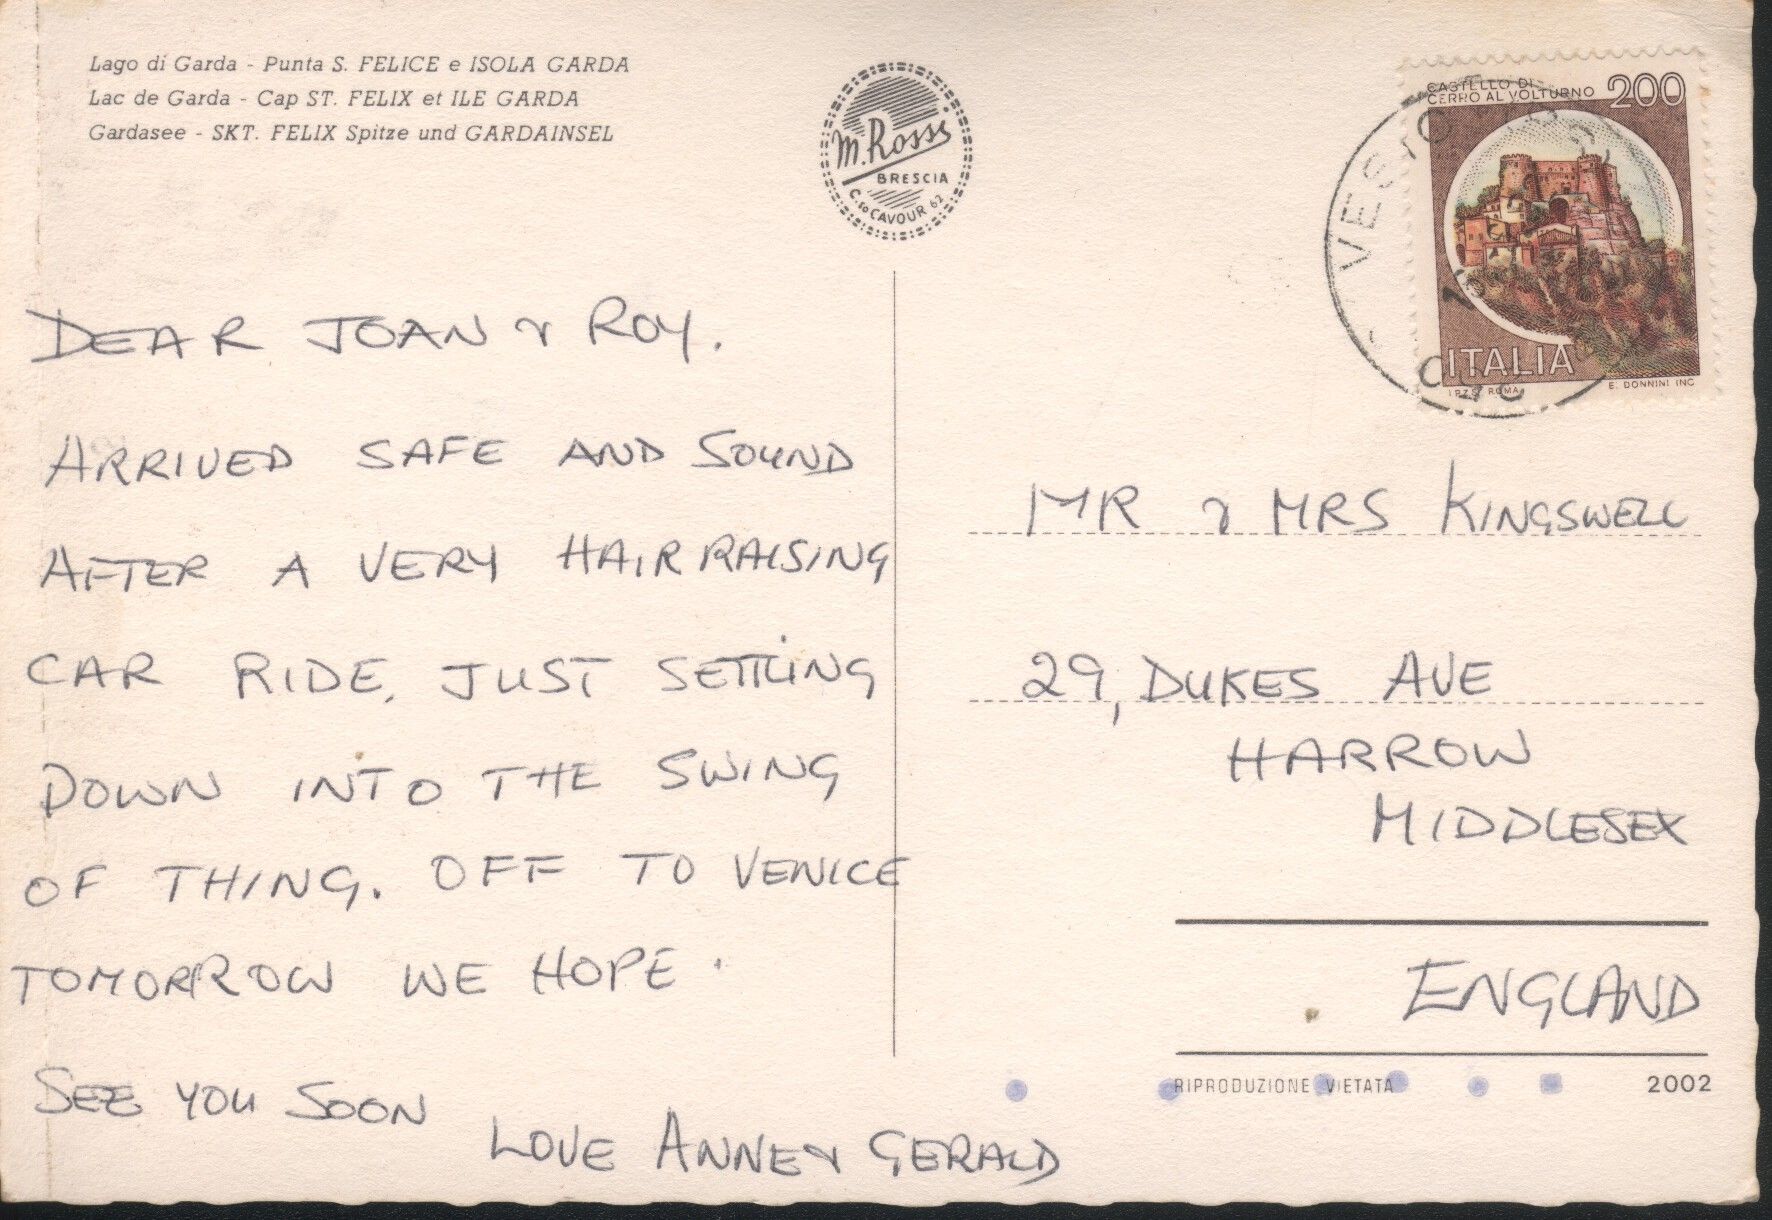 Lago di Garda - Punta S. FELICE e ISOLA GARDA
Lac de Garda - Cap ST. FELIX et ILE GARDA
Gardasee - SKT. FELIX Spitze und GARDAINSEL
M. Rossi
BRESCIA
C.so CAVOUR 62
CASTELLO DI
CERRO AL VOLTURNO
200
ITALIA
I.P.Z.S. ROMA
E. DONNINI INC
DEAR JOAN & ROY.
ARRIVED SAFE AND SOUND
AFTER A VERY HAIR RAISING
CAR RIDE, JUST SETTLING
DOWN INTO THE SWING
OF THING. OFF TO VENICE
TOMORROW WE HOPE.
SEE YOU SOON
LOVE ANNE & GERALD
MR & MRS KINGSWELL
29, DUKES AVE
HARROW
MIDDLESEX
ENGLAND
RIPRODUZIONE VIETATA
2002